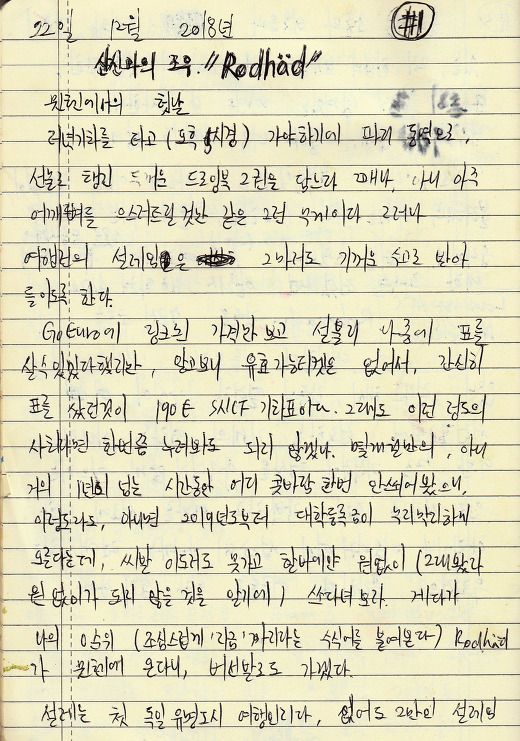 22일 12월 2018년 #1
산신마의 조우. "Rødhåd"
뮌헨에서의 첫날
저녁기차를 타고 (오후 5시경) 가야하기에 파리 동역으로,
선물로 챙긴 두꺼운 드로잉북 2권을 담느라 꽤나, 아니 아주
어깨뼈를 으스러트릴것만 같은 그런 무게이다 그러나
여행전의 설레임은 그마저도 기꺼이 수고로 받아
들이도록 한다.
GoEuro에 링크된 가격만 보고 섣불리 나중에 표를
살수있있다했지만, 알고보니 유효가능티켓은 없어서, 간신히
표를 샀던것이 190€ SNCF 기차표이다. 그래도 이런 정도의
사치라면 한번쯤 누려봐도 되지 않겠나. 몇개월만의, 아니
거의 1년이 넘는 시간동안 어디 콧바람 한번 안쐬어봤으니,
이정도라도, 아니면 2019년도부터 대학등록금이 누리막리하게
오른다는데, 씨발 이도저도 못가고 할바에야 원없이 (그래봤자
원없이가 되지 않을 것을 알기에) 쓰다녀보라. 게다가
나의 0순위 (조심스럽게 '지금' 까지라는 수식어를 붙여본다) Rødhåd
가 뮌헨에 온다니, 버선발로도 가겠다.
설레는 첫 독일 유명도시 여행인지라, 없어도 2만의 설레임